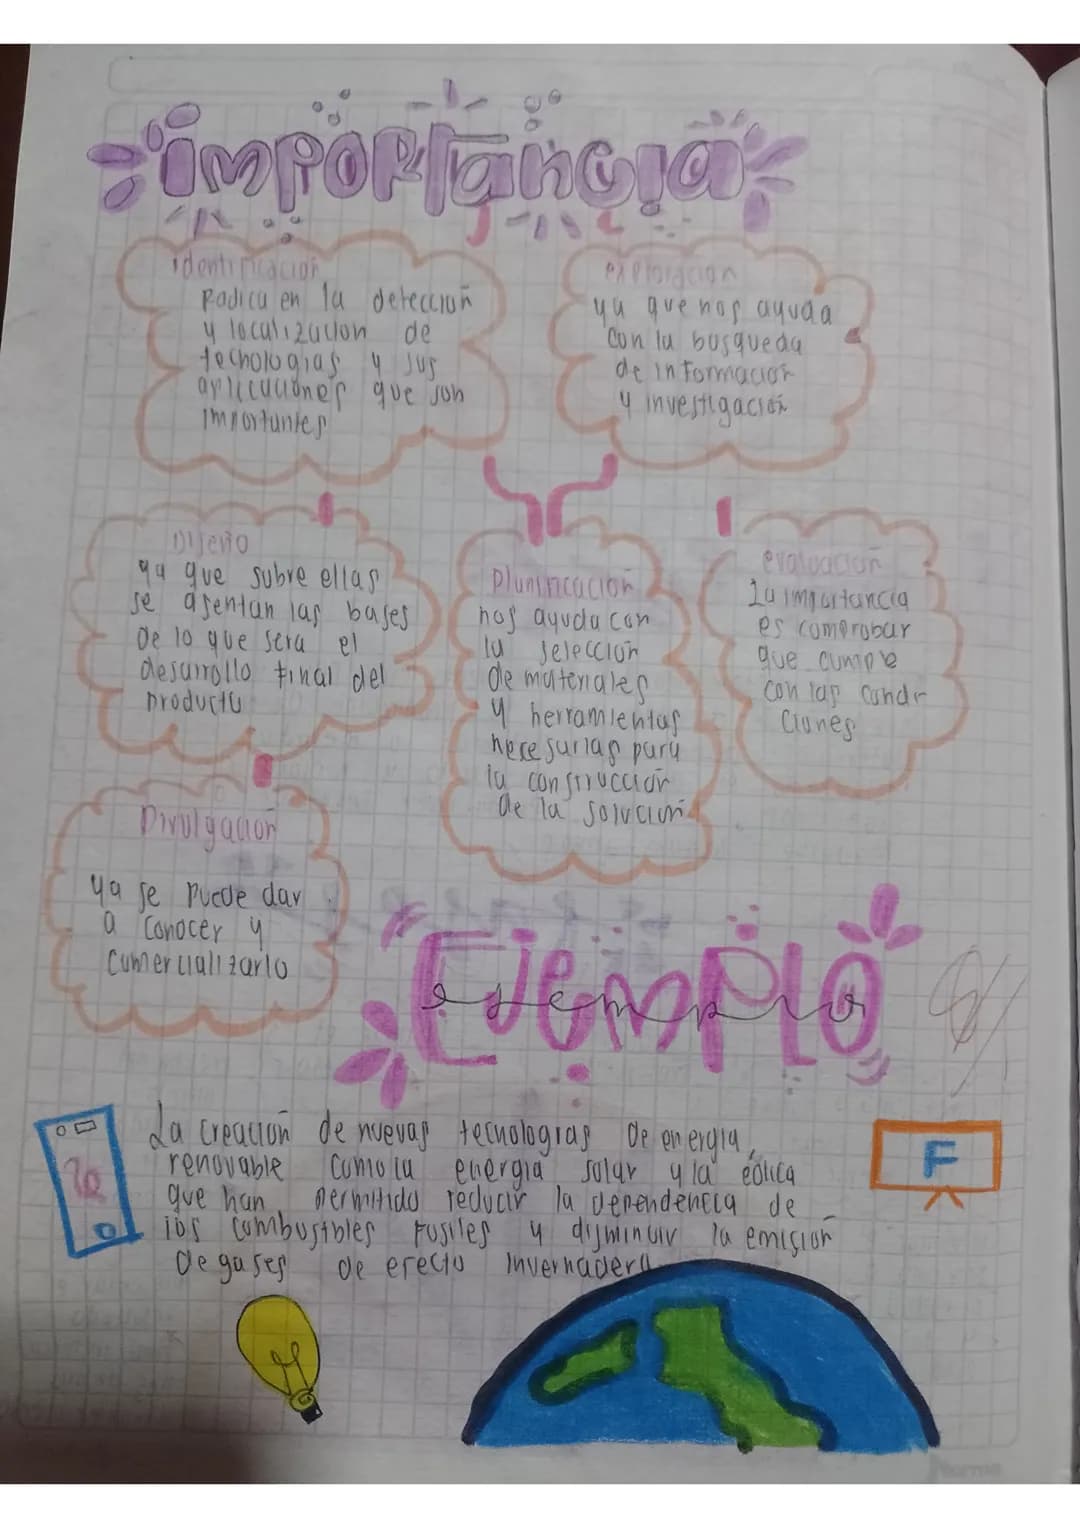 importancia
identificacion
Radica en la deteccion
y localizacion de
tecnologias y sus
aplicaciones que son
importantes
exploracion
ya que nos ayuda
con la busqueda
de informacion
y investigacion
Diseño
ya que sobre ellas
se asentan las bases
de lo que sera el
desarrollo final del
producto
Planificacion
nos ayuda con
la seleccion
de materiales
y herramientas
necesarias para
la construccion
de la solucion
evaluacion
La importancia
es comprobar
que cumple
con las condi
ciones
Divulgacion
ya se puede dar
a conocer y
comercializarlo
Ejemplo
ejemplo
La creacion de nuevas tecnologias de energia
renovable como la energia solar y la eolica
que han permitido reducir la dependencia de
los combustibles fosiles y disminuir la emision
de gases de efecto invernadero
F
Norma